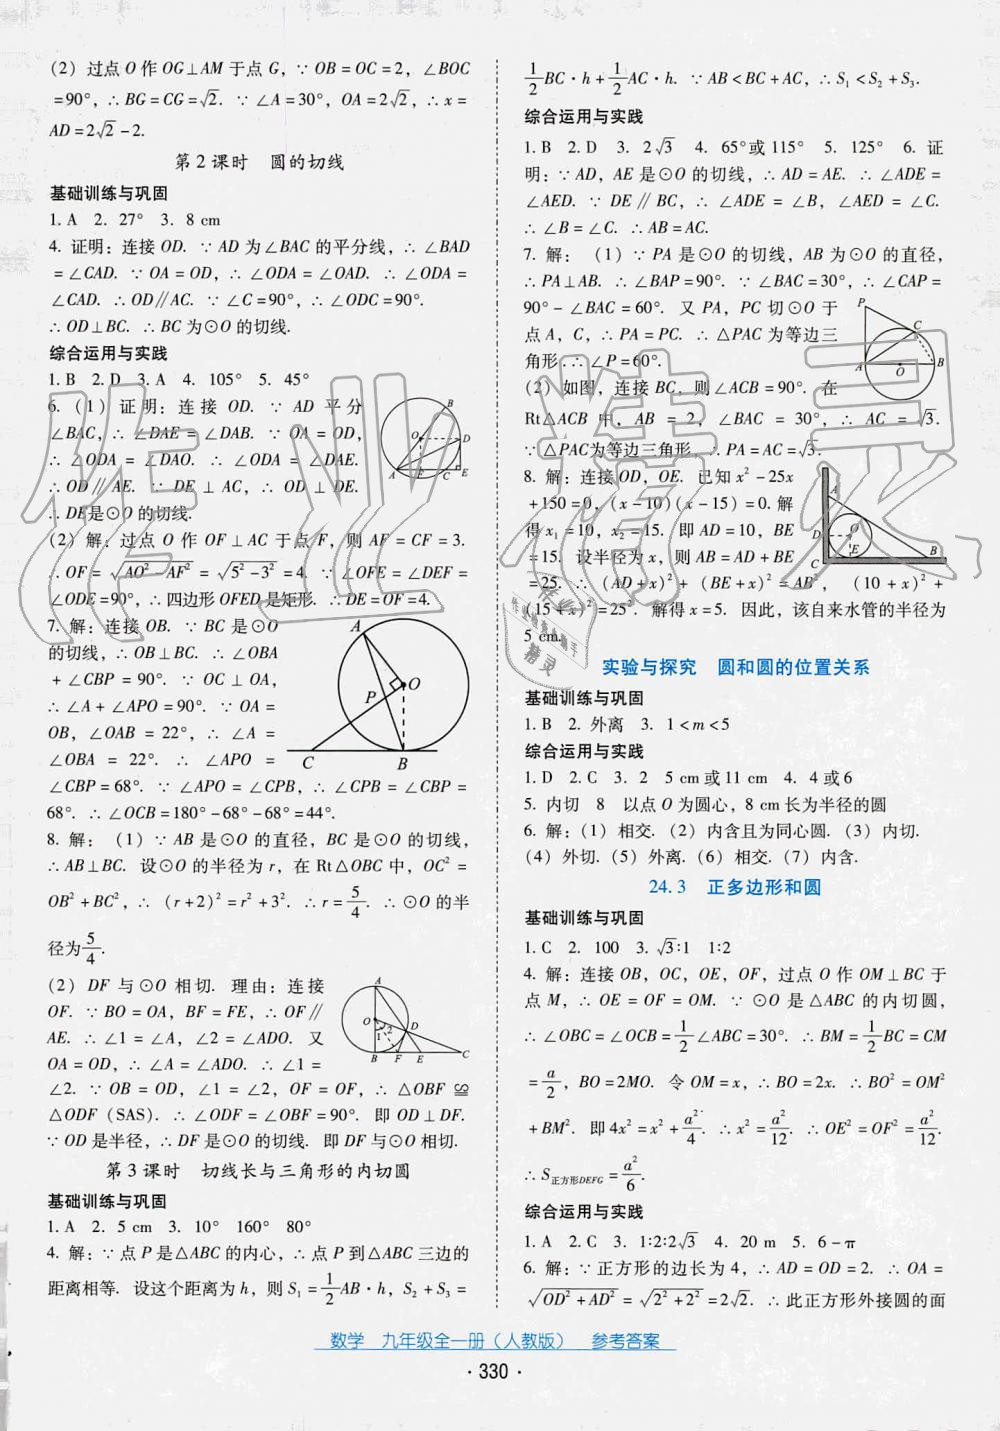 (2) 过点 O 作 OG⊥AM 于点 G, ∵ OB = OC = 2, ∠BOC
= 90°, ∴ BG = CG = √2. ∵ ∠A = 30°, OA = 2√2, ∴ x =
AD = 2√2 - 2.
第 2 课时 圆的切线
基础训练与巩固
1. A 2. 27° 3. 8 cm
4. 证明: 连接 OD. ∵ AD 为∠BAC 的平分线, ∴ ∠BAD
= ∠CAD. ∵ OA = OD, ∴ ∠ODA = ∠OAD. ∴ ∠ODA =
∠CAD. ∴ OD∥AC. ∵ ∠C = 90°, ∴ ∠ODC = 90°.
∴ OD⊥BC. ∴ BC 为⊙O 的切线.
综合运用与实践
1. B 2. D 3. A 4. 105° 5. 45°
6. (1) 证明: 连接 OD. ∵ AD 平分
∠BAC, ∴ ∠DAE = ∠DAB. ∵ OA = OD,
∴ ∠ODA = ∠DAO. ∴ ∠ODA = ∠DAE.
∴ OD∥AE. ∵ DE⊥AC, ∴ OD⊥DE.
∴ DE是⊙O 的切线.
(2) 解: 过点 O 作 OF⊥AC 于点 F, 则 AF = CF = 3.
∴ OF = √(AO² - AF²) = √(5² - 3²) = 4. ∵ ∠OFE = ∠DEF =
∠ODE = 90°, ∴ 四边形 OFED 是矩形. ∴ DE = OF = 4.
7. 解: 连接 OB. ∵ BC 是⊙O
的切线, ∴ OB⊥BC. ∴ ∠OBA
+ ∠CBP = 90°. ∵ OC⊥OA,
∴ ∠A + ∠APO = 90°. ∵ OA =
OB, ∠OAB = 22°, ∴ ∠A =
∠OBA = 22°. ∴ ∠APO =
∠CBP = 68°. ∵ ∠APO = ∠CPB, ∴ ∠CPB = ∠CBP =
68°. ∴ ∠OCB = 180° - 68° - 68° = 44°.
8. 解: (1) ∵ AB 是⊙O 的直径, BC 是⊙O 的切线,
∴ AB⊥BC. 设⊙O 的半径为 r, 在 Rt△OBC 中, OC² =
OB² + BC², ∴ (r+2)² = r² + 3². ∴ r = 5/4. ∴ ⊙O 的半
径为 5/4.
(2) DF 与⊙O 相切. 理由: 连接
OF. ∵ BO = OA, BF = FE, ∴ OF∥
AE. ∴ ∠1 = ∠A, ∠2 = ∠ADO. 又
OA = OD, ∴ ∠A = ∠ADO. ∴ ∠1 =
∠2. ∵ OB = OD, ∠1 = ∠2, OF = OF, ∴ △OBF ≌
△ODF (SAS). ∴ ∠ODF = ∠OBF = 90°. 即 OD⊥DF.
∵ OD 是半径, ∴ DF 是⊙O 的切线. 即 DF 与⊙O 相切.
第 3 课时 切线长与三角形的内切圆
基础训练与巩固
1. A 2. 5 cm 3. 10° 160° 80°
4. 解: ∵ 点 P 是△ABC 的内心, ∴ 点 P 到△ABC 三边的
距离相等. 设这个距离为 h, 则 S₁ = 1/2 AB·h, S₂ + S₃ =
1/2 BC·h + 1/2 AC·h. ∵ AB < BC + AC, ∴ S₁ < S₂ + S₃.
综合运用与实践
1. B 2. D 3. 2√3 4. 65°或 115° 5. 125° 6. 证
明: ∵ AD, AE 是⊙O 的切线, ∴ AD = AE. ∴ ∠ADE =
∠AED. ∵ DE∥BC, ∴ ∠ADE = ∠B, ∠AED = ∠C.
∴ ∠B = ∠C. ∴ AB = AC.
7. 解: (1) ∵ PA 是⊙O 的切线, AB 为⊙O 的直径,
∴ PA⊥AB. ∴ ∠BAP = 90°. ∵ ∠BAC = 30°, ∴ ∠CAP =
90° - ∠BAC = 60°. 又 PA, PC 切⊙O 于
点 A, C, ∴ PA = PC. ∴ △PAC 为等边三
角形. ∴ ∠P = 60°.
(2) 如图, 连接 BC, 则∠ACB = 90°. 在
Rt△ACB 中, AB = 2, ∠BAC = 30°, ∴ AC = √3.
∵ △PAC为等边三角形, ∴ PA = AC = √3.
8. 解: 连接OD, OE. 已知 x² - 25x
+ 150 = 0, (x-10)(x-15) = 0. 解
得 x₁ = 10, x₂ = 15. 即 AD = 10, BE
= 15. 设半径为 x, 则 AB = AD + BE
= 25. ∴ (AD+x)² + (BE+x)² = AB², (10+x)² +
(15+x)² = 25². 解得 x = 5. 因此, 该自来水管的半径为
5 cm.
实验与探究 圆和圆的位置关系
基础训练与巩固
1. B 2. 外离 3. 1 < m < 5
综合运用与实践
1. D 2. C 3. 2 5 cm 或 11 cm 4. 4 或 6
5. 内切 8 以点 O 为圆心, 8 cm 长为半径的圆
6. 解: (1) 相交. (2) 内含且为同心圆. (3) 内切.
(4) 外切. (5) 外离. (6) 相交. (7) 内含.
24.3 正多边形和圆
基础训练与巩固
1. C 2. 100 3. √3∶1 1∶2
4. 解: 连接 OB, OC, OE, OF, 过点 O 作 OM⊥BC 于
点 M, ∴ OE = OF = OM. ∵ ⊙O 是△ABC 的内切圆,
∴ ∠OBC = ∠OCB = 1/2 ∠ABC = 30°. ∴ BM = 1/2 BC = CM
= a/2, BO = 2MO. 令 OM = x, ∴ BO = 2x. ∴ BO² = OM²
+ BM². 即 4x² = x² + a²/4. ∴ x² = a²/12. ∴ OE² = OF² = a²/12.
∴ S正方形DEFG = a²/6.
综合运用与实践
1. A 2. C 3. 1∶2∶2√3 4. 20 m 5. 6 - π
6. 解: ∵ 正方形的边长为 4, ∴ AD = OD = 2. ∴ OA =
√(OD² + AD²) = √(2² + 2²) = 2√2. ∴ 此正方形外接圆的面
数学 九年级全一册(人教版) 参考答案
· 330 ·